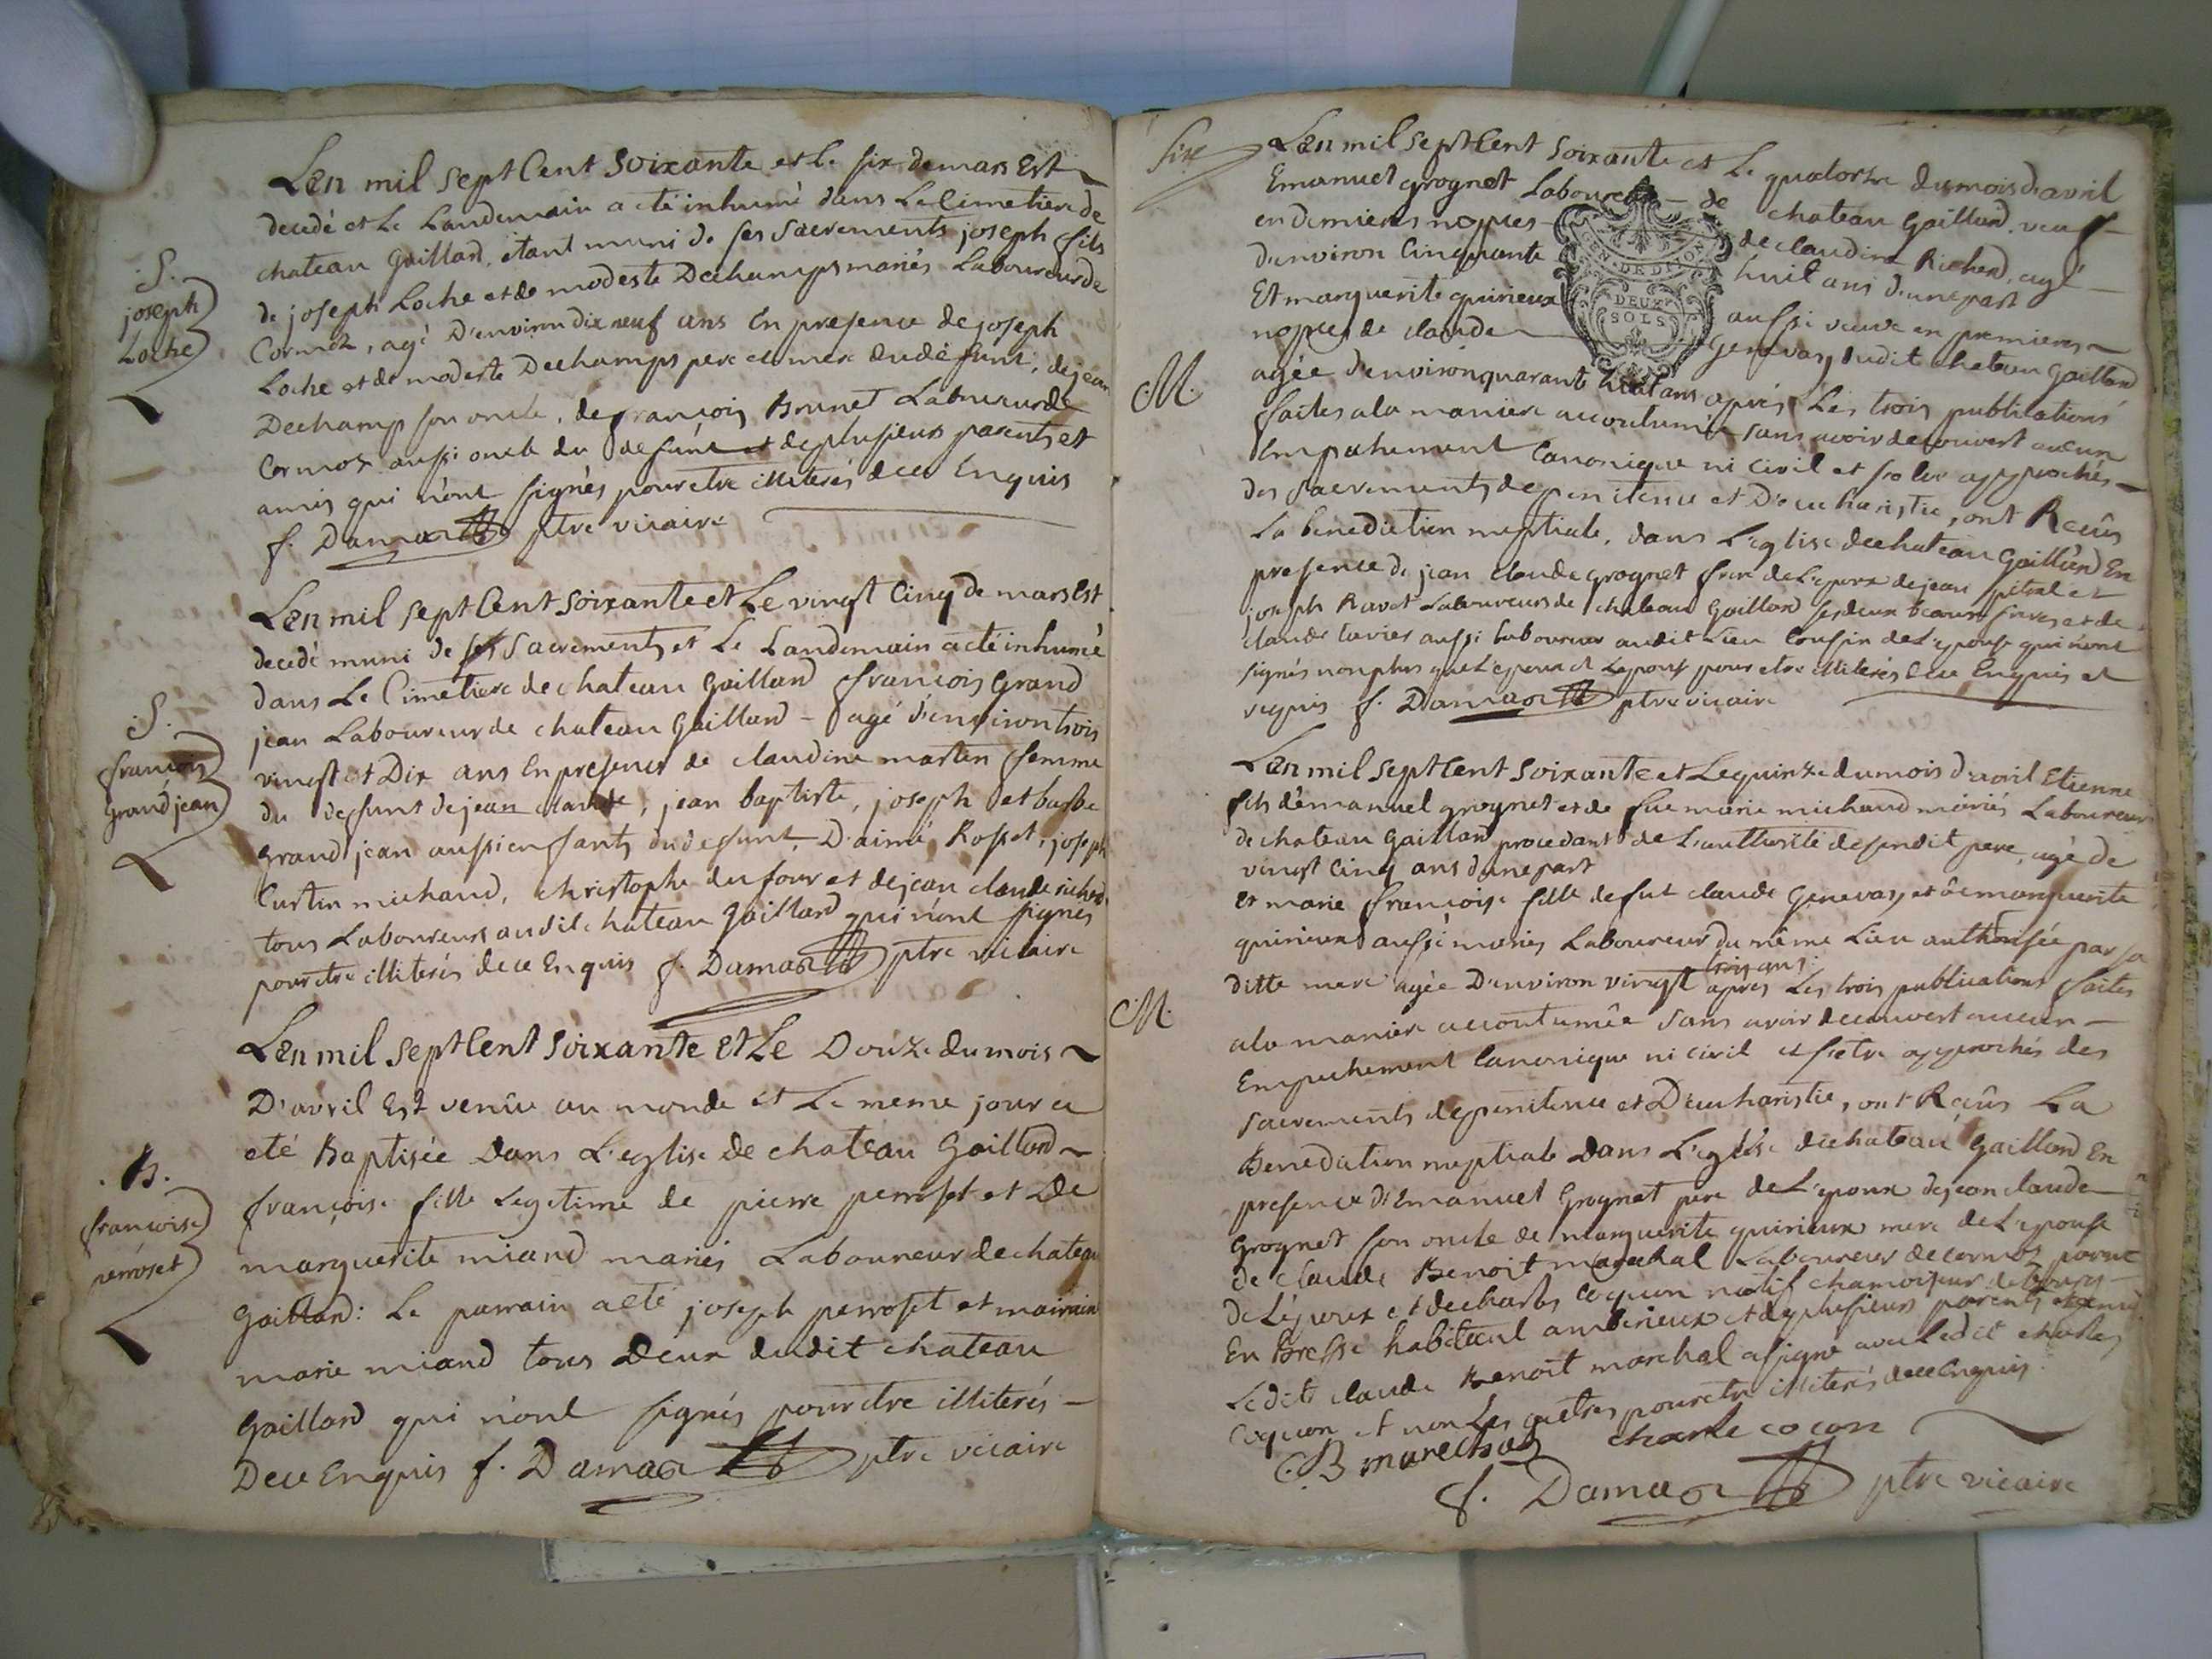 L'en mil sept Cent Soixante et le six de mars Est
decedé et Le Landemain a eté inhumé dans Le Cimetiere de
chateau Gaillard, etant muni de ses Sacrements joseph fils
de joseph Loche et de modeste Dechamps mariés Laboureur de
Cormoz, agé D'environ dix neuf ans En presence de joseph
Loche et de modeste Dechamps pere et mere dudefunt, de jean
Dechamp son oncle, de françois Brunet Laboureur de
Cormoz aussi oncle du defunt et de plusieurs parents et
amis qui n'ont signés pour etre illiterés de ce Enquis
f. Damaz ptre vicaire
S.
joseph
Loche
L'en mil sept Cent soixante et Le vingt Cinq de mars Est
decedé muni de ses Sacrements et Le Landemain a eté inhumé
dans Le Cimetiere de chateau Gaillard françois Grand
jean Laboureur de chateau Gaillard - agé d'environ trois
vingt et Dix ans En presence de claudine martin femme
du deffunt de jean claude, jean baptiste, joseph et barbe
Grand jean aussi enfants du defunt, D'aimé Rosset, joseph
Curtin michaud, christophe dufour et de jean claude richerd
tous Laboureurs audit chateau Gaillard qui n'ont signés
pour etre illiterés de ce Enquis f. Damaz ptre vicaire
S.
françois
Grand jean
L'en mil Sept Cent Soixante Et Le Douze du mois
D'avril Est venüe au monde et Le meme jour a
eté Baptisée Dans L'eglise de chateau Gaillard
françoise fille Legitime de pierre perroset et De
marguerite miand mariés Laboureur de chateau
Gaillard: Le parrain a eté joseph perroset et mairaine
marie miand tous Deux dudit chateau
Gaillard qui n'ont signés pour etre illiterés -
De ce Enquis f. Damaz ptre vicaire
B.
françoise
perroset
Sixe
L'en mil Sept Cent Soixante et Le quatorze du mois d'avril
Emanuel grognet Laboureur - de chateau Gaillard, veuf -
en dernieres nopces - de claudine Richerd, agé -
d'environ Cinquante huit ans d'une part
Et marguerite quirieux aussi veuve en premieres
nopces de claude Genevay dudit chateau Gaillard
GEN. DE DIJON
DEUX
SOLS
agée d'environ quarante huit ans après Les trois publications
faites a la maniere accoutumée sans avoir decouvert aucun
Empechement Canonique ni Civil et s'etre approchés
des sacrements de penitence et D'eucharistie, ont Reçûs
La benediction nuptiale, dans L'eglise de chateau Gaillard En
presence de jean claude grognet frere de L'epoux de jean et
joseph Ravet Laboureurs de chateau Gaillard ses deux beaux freres et de
claude aussi Laboureur audit Lieu Cousin de L'epouse qui n'ont
signés non plus que L'epoux et L'epouse pour etre illiterés de ce Enquis et
requis f. Damaz ptre vicaire
M.
L'en mil Sept Cent Soixante et Le quinze du mois d'avril Etienne
fils d'emanuel grognet et de fue marie michaud mariés Laboureur
de chateau Gaillard procedant de L'autthorité de sondit pere, agé de
vingt Cinq ans d'une part
et marie françoise fille de fut claude Genevay et de marguerite
quirieux aussi mariés Laboureur du même Lieu authorisée par sa
ditte mere agée D'environ vingt trois ans après Les trois publications faites
a la maniere accoutumée Sans avoir decouvert aucun -
Empechement Canonique ni civil et s'etre approchés des
Sacrements de penitence et D'eucharistie, ont Reçûs La
Benediction nuptiale Dans L'eglise de chateau Gaillard En
presence d'Emanuel Grognet pere de L'epoux de jean claude
Grognet son oncle de marguerite quirieux mere de L'epouse
de claude Benoit marechal Laboureur de cormoz parent
de L'epoux et de charles Coquon natif chamoiseur de bourg
En Bresse habitant ambérieux et de plusieurs parents et amis
Ledit claude Benoit marechal a signé avec Ledit charles
Coquon et non Les autres pour etre illiterés de ce Enquis
C. B marechal charle cocon
f. Damaz ptre vicaire
M.